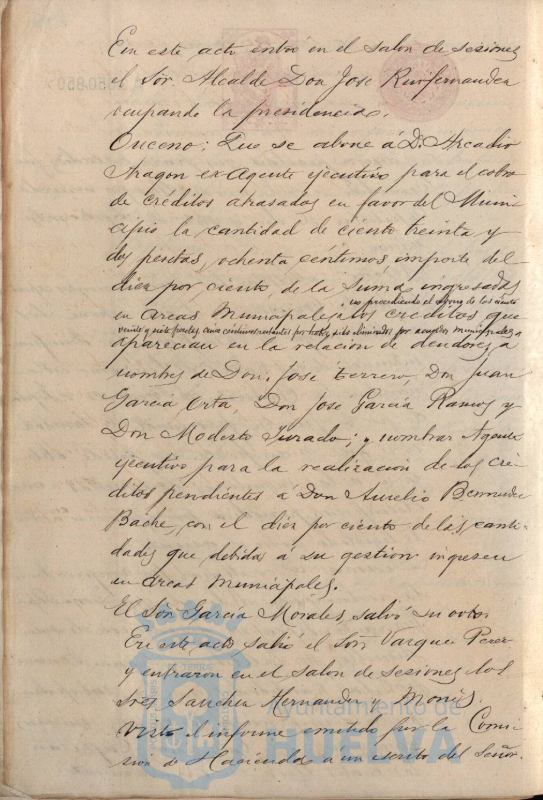 En este acto entró en el salon de sesiones
el Sór Alcalde Don Jose Ruifernandez
ocupando la presidencia.
Onceno: Que se abone á Dn. Arcadio
Aragon ex Agente ejecutivo para el cobro
de créditos atrasados en favor del Muni
cipio la cantidad de ciento treinta y
dos pesetas, ochenta céntimos importe del
diez por ciento de la suma ingresada
en arcas Municipales, no procediendo el abono de los ciento
veinte y siete pesetas, cinco céntimos restantes por haber sido eliminados por acuerdos municipales
los créditos que
aparecian en la relacion de deudores á
nombres de Don José Ferrero, Don Juan
García Orta, Don José García Ramos y
Don Modesto Jurado; y nombrar Agente
ejecutivo para la realizacion de los cré
ditos pendientes á Don Aurelio Bermudez
Bache, con el diez por ciento de las canti-
dades que debidas á su gestion ingresen
en arcas Municipales.
El Sór García Morales, salvó su voto.
En este acto salió el Sór Vazquez Perez
y entraron en el salon de sesiones los
Sres Sanchez Hernandez y Monís.
Visto el informe emitido por la Comi
sion de Hacienda á un escrito del Señor
Ayuntamiento de
HUELVA